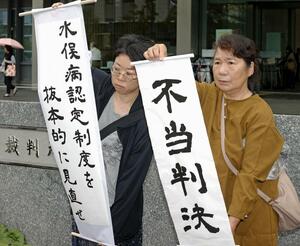 不当判決
水俣病認定制度を
抜本的に見直せ
裁判